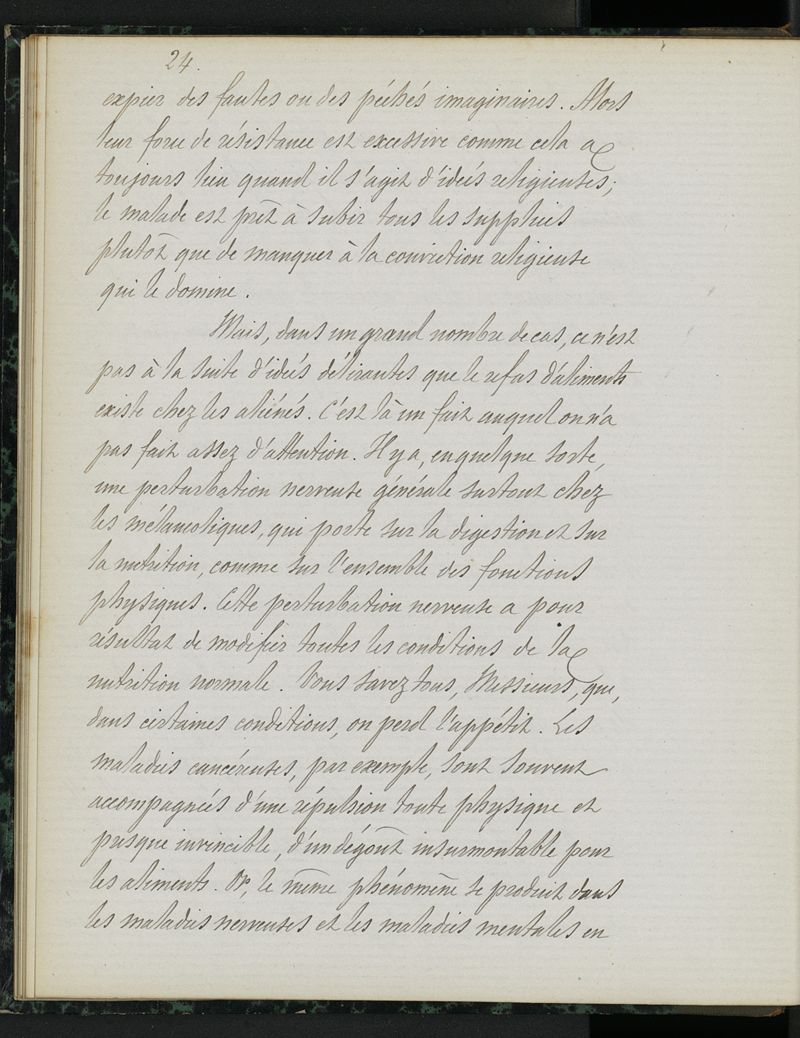 24.
expier des fautes ou des péchés imaginaires. Alors
leur force de résistance est excessive comme cela a
toujours lieu quand il s'agit d'idées religieuses;
le malade est prêt à subir tous les supplices
plutôt que de manquer à la conviction religieuse
qui le domine.
Mais, dans un grand nombre de cas, ce n'est
pas à la suite d'idées délirantes que le refus d'aliments
existe chez les aliénés. C'est là un fait auquel on n'a
pas fait assez d'attention. Il y a, en quelque sorte,
une perturbation nerveuse générale surtout chez
les mélancoliques, qui porte sur la digestion et sur
la nutrition, comme sur l'ensemble des fonctions
physiques. Cette perturbation nerveuse a pour
résultat de modifier toutes les conditions de la
nutrition normale. Vous savez tous, Messieurs, que,
dans certaines conditions, on perd l'appétit. Les
maladies cancéreuses, par exemple, sont souvent
accompagnées d'une répulsion toute physique et
presque invincible, d'un dégoût insurmontable pour
les aliments. Or, le même phénomène se produit dans
les maladies nerveuses et les maladies mentales en